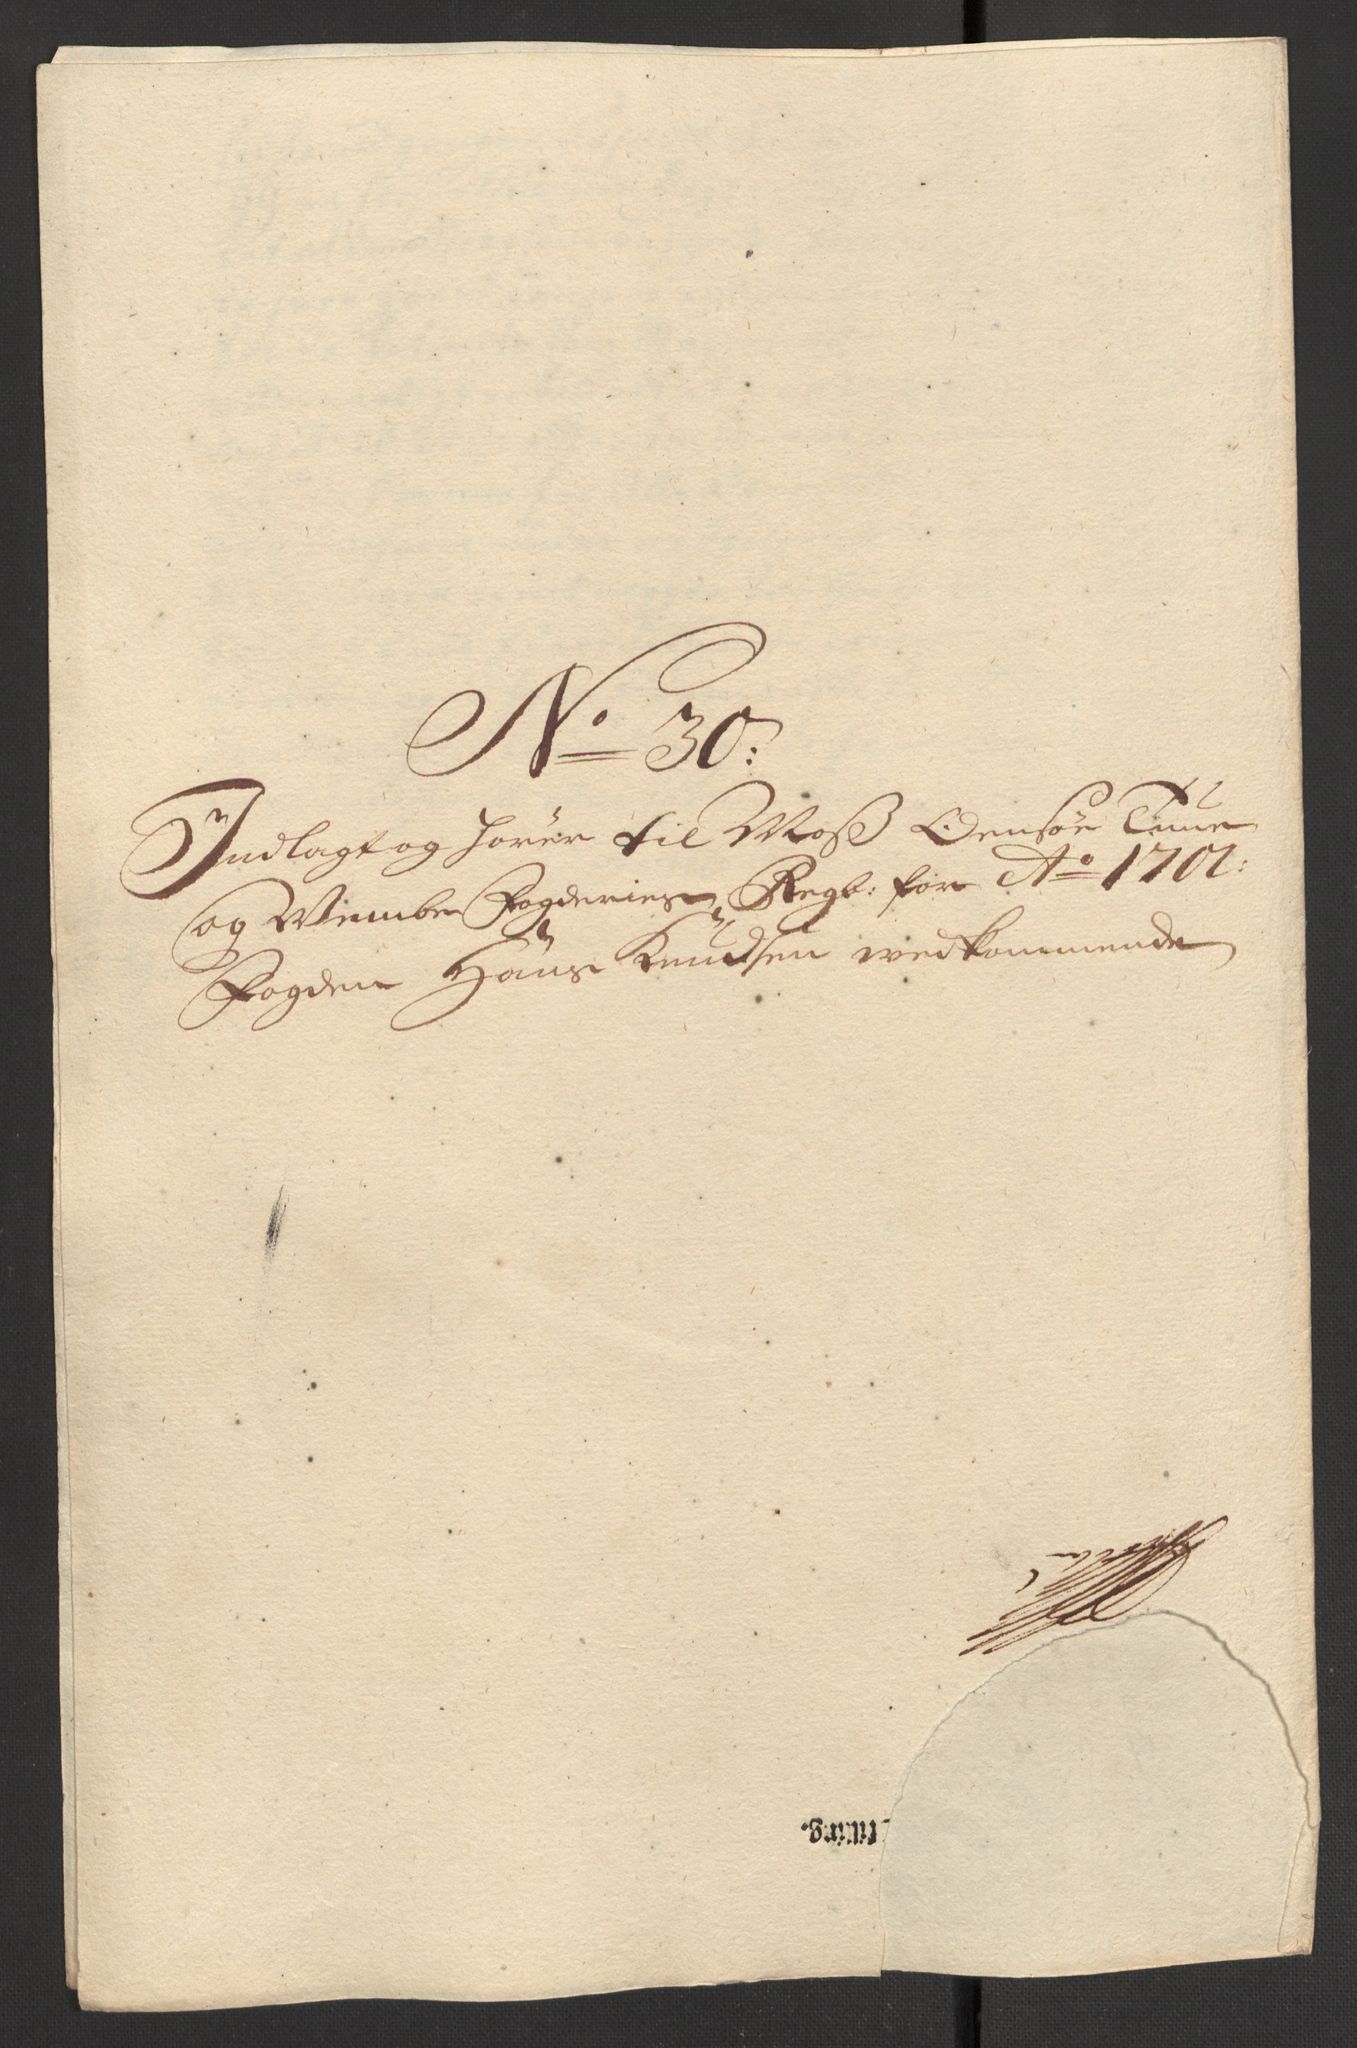 No 30:
Indlagt og hörer til Moss Oensöe Tune
og Wembe Fogderies Regb: for Ao 1701:
Fogden Hans Knudsen vedkommende
lling.